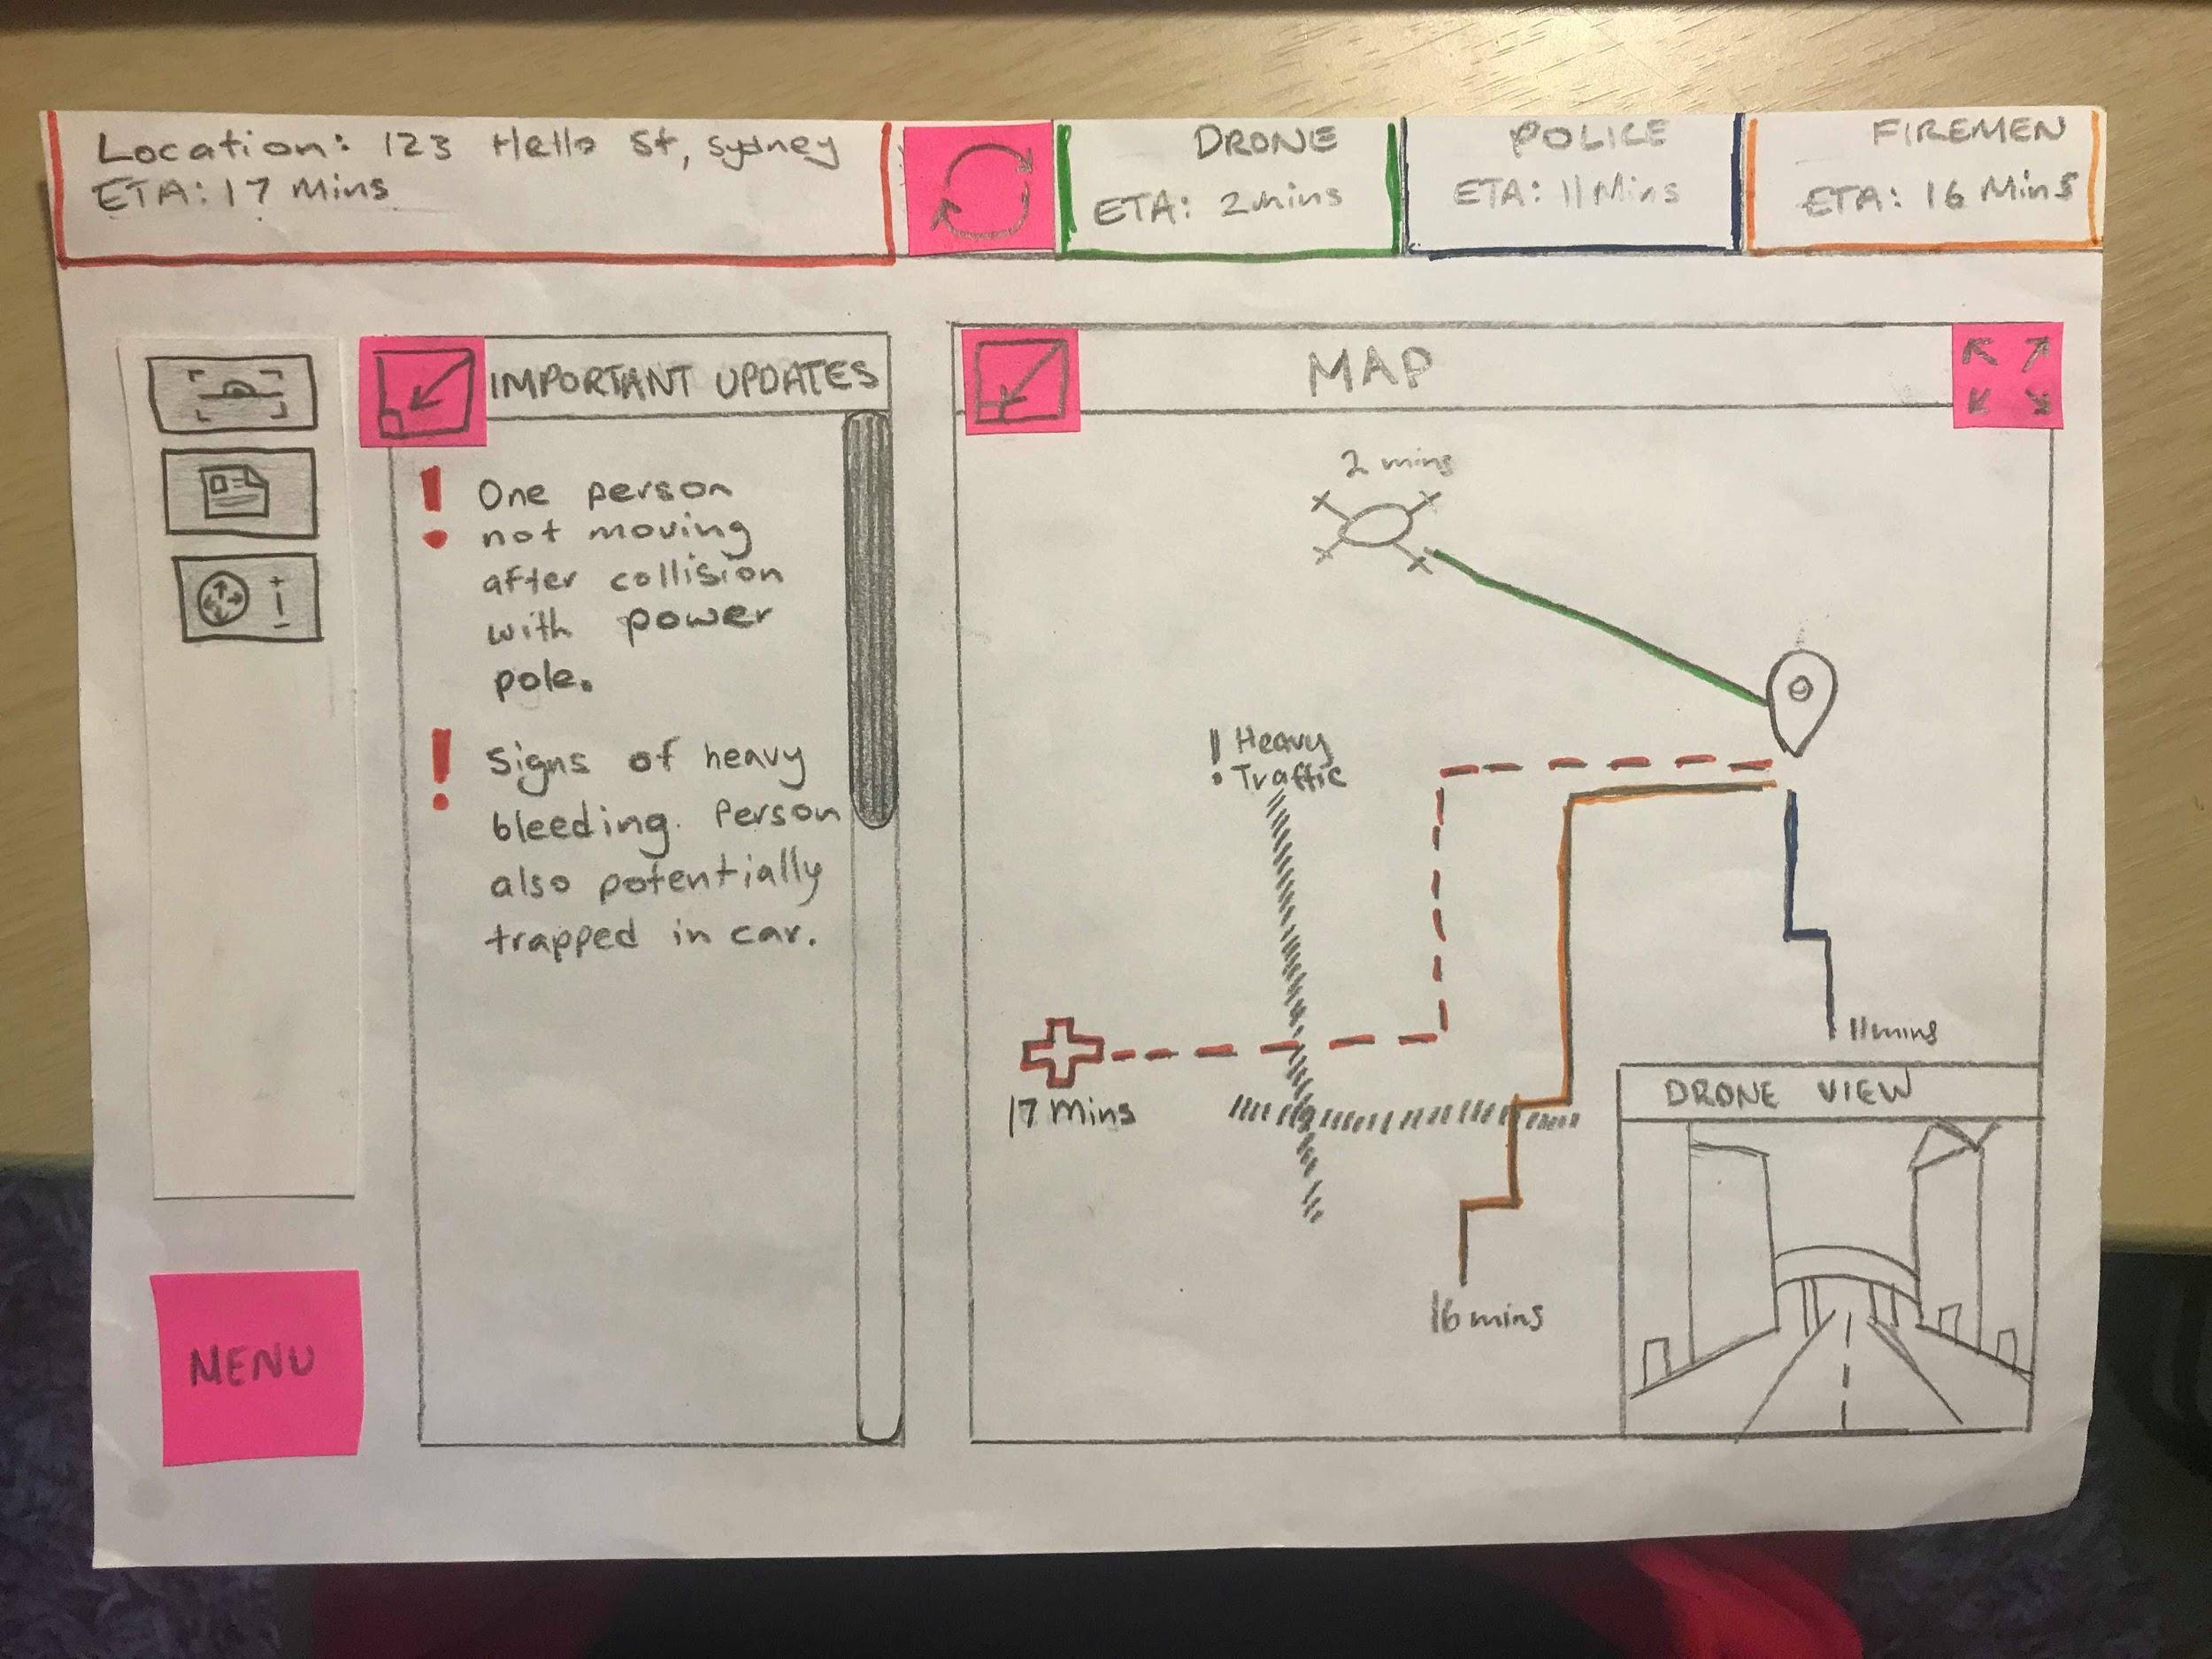 Location: 123 Hello St, sydney
ETA: 17 Mins
DRONE
ETA: 2mins
POLICE
ETA: 11 Mins
FIREMEN
ETA: 16 Mins
IMPORTANT UPDATES
! One person
not moving
after collision
with power
pole.
! Signs of heavy
bleeding. Person
also potentially
trapped in car.
MENU
MAP
2 mins
! Heavy
Traffic
17 Mins
11mins
16 mins
DRONE VIEW